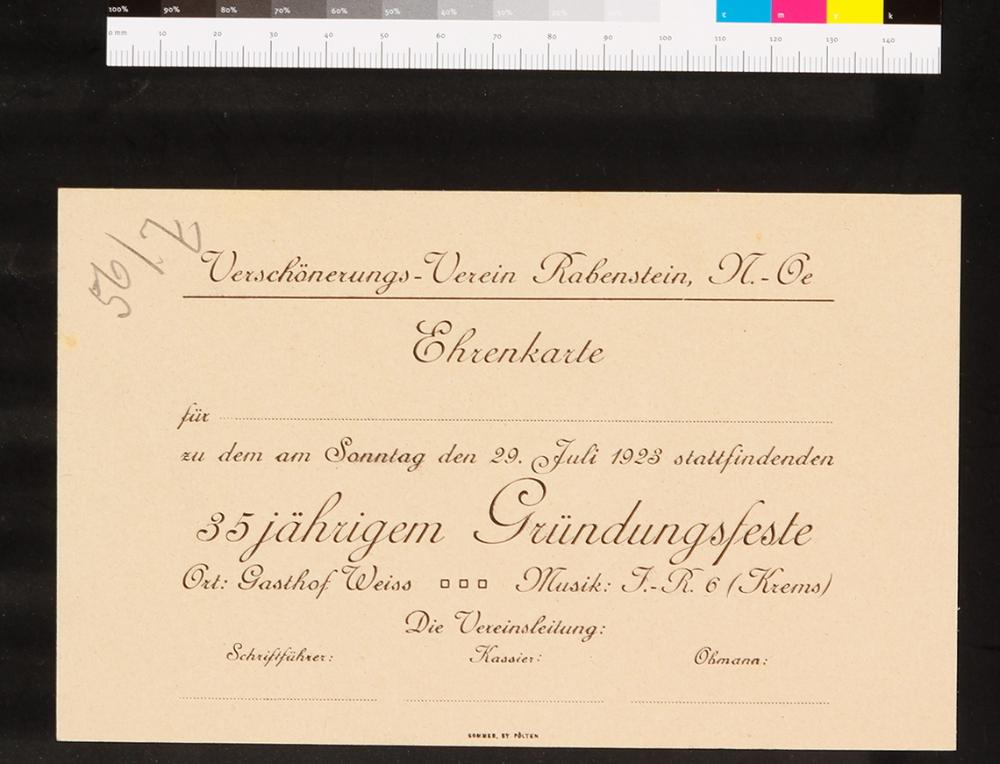 100% 90% 80% 70% 60% 50% 40% 30% 20% c m y k
0 mm 10 20 30 40 50 60 70 80 90 100 110 120 130 140
56/Z
Verschönerungs-Verein Rabenstein, N.-Oe
Ehrenkarte
für
zu dem am Sonntag den 29. Juli 1923 stattfindenden
35jährigem Gründungsfeste
Ort: Gasthof Weiss □□□ Musik: I.-R. 6 (Krems)
Die Vereinsleitung:
Schriftführer: Kassier: Obmann:
SOMMER, ST. PÖLTEN